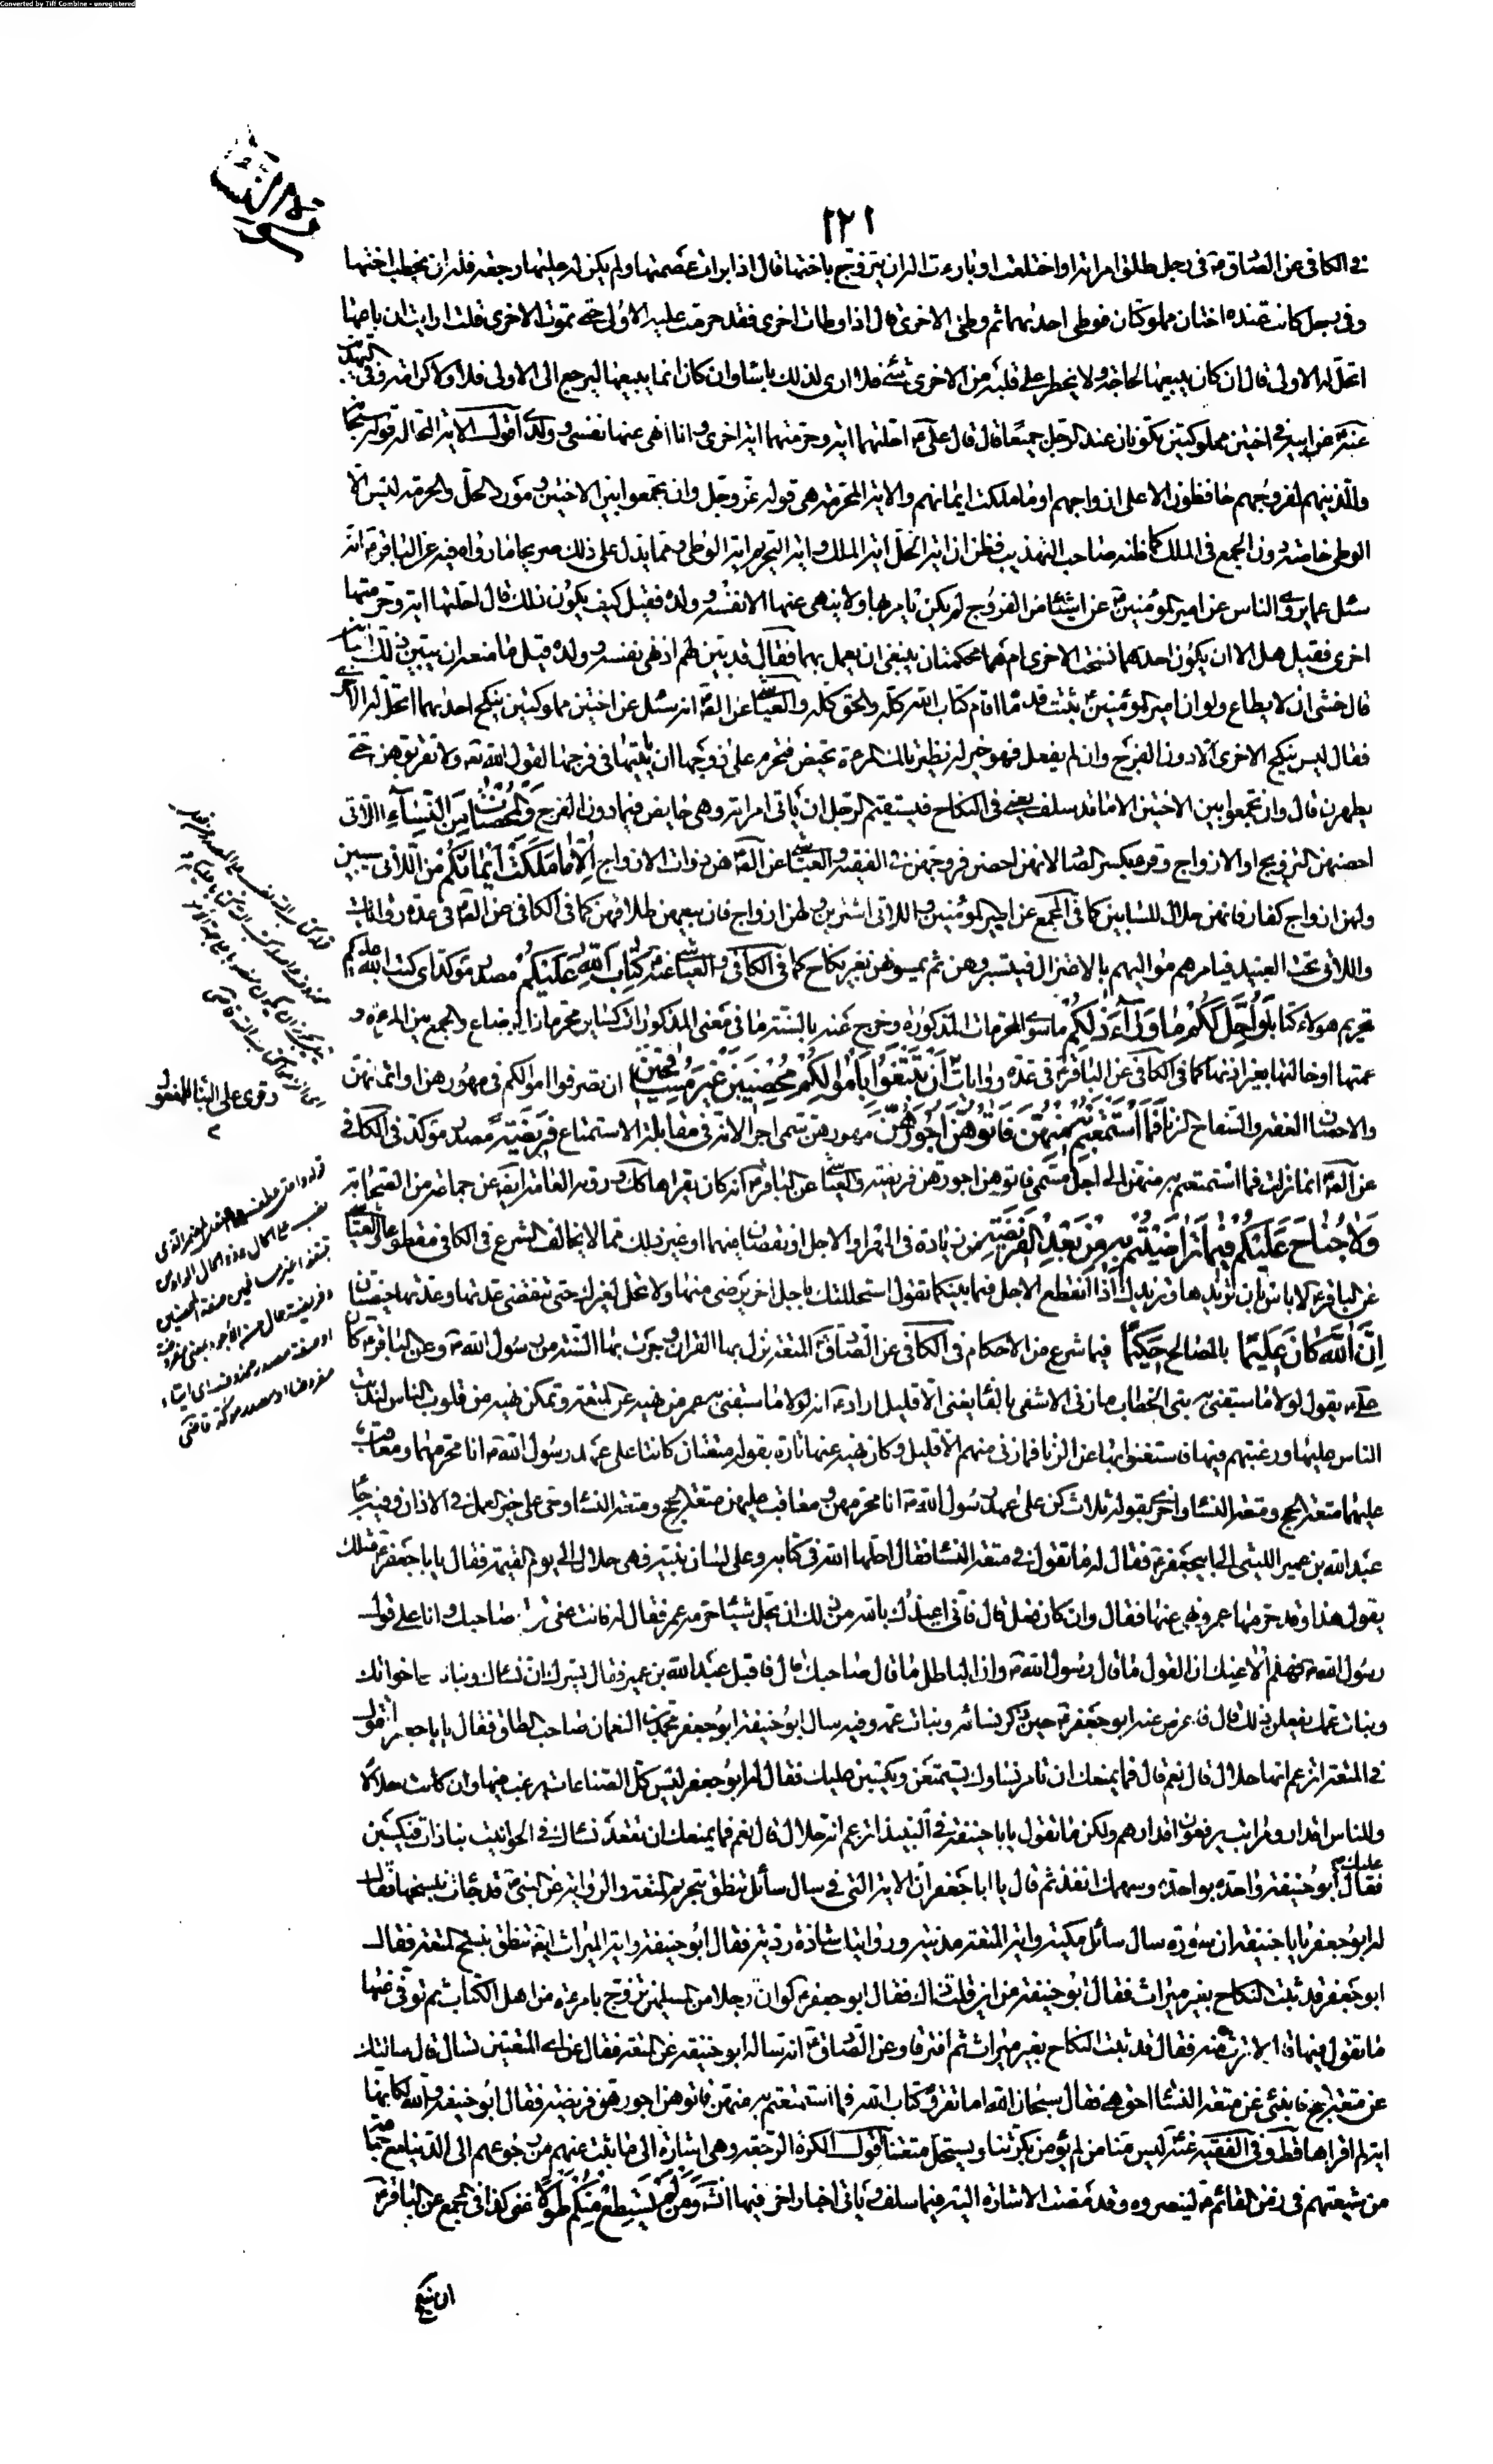 Converted by Tiff Combine - unregistered
سورة النساء
١٢١
في الكافي عن الصادق ع في رجل طلق امراته او اختلعت او بارءت اله ان يتزوج باختها قال اذا برات عصمتها ولم يكن له عليها رجعة فله ان يخطب اختها
وفي رجل كانت عنده اختان مملوكتان فوطى احديهما ثم وطئ الاخرى قال اذا وطات اخرى فقد حرمت عليه الاولى حتى تموت الاخرى قلت ارايت ان باعها
اتحل له الاولى قال ان كان يبيعها لحاجة ولا يخطر على قلبه من الاخرى شئ فلا ارى لذلك باسا وان كان انما يبيعها ليرجع الى الاولى فلا ولا كرامة وفي التهذيب
عنه عن ابيه ع في اختين مملوكتين تكونان عند الرجل جميعا قال قال علي ع احلتهما اية وحرمتهما اية اخرى وانا انهى عنهما نفسي وولدي اقول الاية المحللة قوله سبحانه
والذين هم لفروجهم حافظون الا على ازواجهم او ما ملكت ايمانهم والاية المحرمة هي قوله عز وجل وان تجمعوا بين الاختين ومورد الحل والحرمة ليس الا
الوطي خاصة دون الجمع في الملك كما ظنه صاحب التهذيب فظن ان اية الحل اية الملك واية التحريم اية الوطي ومما يدل على ذلك صريحا ما رواه فيه عن الباقر ع انه
سئل عما يروي الناس عن امير المؤمنين ع عن اشياء من الفروج لم يكن يامر بها ولا ينهى عنها الا نفسه وولده فقيل كيف يكون ذلك قال احلتها اية وحرمتها
اخرى فقيل هل الا ان يكون احديهما نسخت الاخرى ام هما محكمتان ينبغي ان يعمل بهما فقال قد بين لهم اذ نهى نفسه وولده قيل ما منعه ان يبين ذلك للناس
قال خشى ان لا يطاع ولو ان امير المؤمنين ع ثبتت قدماه اقام كتاب الله كله والحق كله والعياشي عن الص انه سئل عن اختين مملوكتين ينكح احديهما اتحل له الاخرى
فقال ليس ينكح الاخرى الا دون الفرج وان لم يفعل فهو خير له نظير تلك المرءة تحيض فتحرم على زوجها ان ياتيها في فرجها لقول الله ته ولا تقربوهن حتى
يطهرن قال وان تجمعوا بين الاختين الا ما قد سلف يعني في النكاح فيستقيم الرجل ان ياتي امراته وهي حايض فيما دون الفرج والمحصنات من النساء اللاتي
احصنهن التزويج او الازواج وقرء بكسر الصاد لانهن احصن فروجهن في الفقيه والعياشي عن الص هن ذوات الازواج الا ما ملكت ايمانكم من اللاتي سبين
ولهن ازواج كفار فانهن حلال للسابين كما في المجمع عن امير المؤمنين ع واللاتي اشترين ولهن ازواج فان بيعهن طلاقهن كما في الكافي عن الص في عدة روايات
واللاتي تحت العبيد فيامرهم مواليهم بالاعتزال فيستبرؤهن ثم يمسوهن بغير نكاح كما في الكافي والعياشي عنه كتاب الله عليكم مصدر مؤكد اي كتب الله عليكم
تحريم هؤلاء كتابا واحل لكم ما وراء ذلكم ما سوى المحرمات المذكورة وخرج عنه بالسنة ما في معنى المذكورات كساير محرمات الرضاع والجمع بين المرءة و
عمتها او خالتها بغير اذنها كما في الكافي عن الباقر ع في عدة روايات ان تبتغوا باموالكم محصنين غير مسافحين ان تصرفوا اموالكم في مهورهن او اثمانهن
والاحصان العفة والسفاح الزنا فما استمتعتم به منهن فاتوهن اجورهن مهورهن سمي اجرا لانه في مقابلة الاستمتاع فريضة مصدر مؤكد في الكافي
عن الص انما نزلت فما استمتعتم به منهن الى اجل مسمى فاتوهن اجورهن فريضة والعياشي عن الباقر ع انه كان يقراها كك وروته العامة ايضا عن جماعة من الصحابة
ولا جناح عليكم فيما تراضيتم به من بعد الفريضة من زيادة في المهر او الاجل او نقصان فيهما او غير ذلك مما لا يخالف الشرع في الكافي مقطوعا والعياشي
عن الباقر ع لا باس بان تزيدها وتزيدك اذا انقطع الاجل فيما بينكما تقول استحللتك باجل اخر برضى منها ولا تحل لغيرك حتى تنقضي عدتها وعدتها حيضتان
ان الله كان عليما بالمصالح حكيما فيما شرع من الاحكام في الكافي عن الصادق ع المتعة نزل بها القران وجرت بها السنة من رسول الله ص وعن الباقر ع كان
علي ع يقول لولا ما سبقني به بني الخطاب ما زنى الا شفى بالفاء يعني الا قليل اراد ع انه لولا ما سبقني به عمر من نهيه عن المتعة وتمكن نهيه من قلوب الناس لندبت
الناس عليها ورغبتهم فيها فاستغنوا بها عن الزنا فما زنى منهم الا قليل وكان نهيه عنها تارة بقوله متعتان كانتا على عهد رسول الله ص انا محرمهما ومعاقب
عليهما متعة الحج ومتعة النساء واخرى بقوله ثلاث كن على عهد رسول الله ص انا محرمهن ومعاقب عليهن متعة الحج ومتعة النساء وحى على خير العمل في الاذان وفيه جاء
عبد الله بن عمير الليثي الى ابي جعفر ع فقال له ما تقول في متعة النساء فقال احلها الله في كتابه وعلى لسان نبيه فهي حلال الى يوم القيمة فقال يا با جعفر ع مثلك
يقول هذا وقد حرمها عمر ونهى عنها فقال وان كان فعل قال فاني اعيذك بالله من ذلك ان تحل شيئا حرمه عمر فقال له فانت على قول صاحبك وانا على قول
رسول الله ص فهلم الاعنك ان القول ما قال رسول الله ص وان الباطل ما قال صاحبك قال فاقبل عبد الله بن عمير فقال يسرك ان نساءك وبناتك واخواتك
وبنات عمك يفعلن ذلك قال فاعرض عنه ابو جعفر ع حين ذكر نساءه وبنات عمه وفيه سال ابو حنيفة ابو جعفر محمد بن النعمان صاحب الطاق فقال يا با جعفر ما تقول
في المتعة اتزعم انها حلال قال نعم قال فما يمنعك ان تامر نساءك يستمتعن ويكتسبن عليك فقال له ابو جعفر ليس كل الصناعات يرغب فيها وان كانت حلالا
وللناس اقدار ومراتب يرفعون اقدارهم ولكن ما تقول يا با حنيفة في النبيذ اتزعم انه حلال قال نعم قال فما يمنعك ان تقعد نساءك في الحوانيت نباذات فيكتسبن
عليك
فقال ابو حنيفة واحدة بواحدة وسهمك انفذ ثم قال يا ابا جعفر ان الاية التي في سال سائل تنطق بتحريم المتعة والرواية عن النبي ص قد جاءت بنسخها فقال
له ابو جعفر يا با حنيفة ان سورة سال سائل مكية واية المتعة مدنية وروايتك شاذة ردية فقال ابو حنيفة واية الميراث ايضا تنطق بنسخ المتعة فقال
ابو جعفر قد ثبت النكاح بغير ميراث فقال ابو حنيفة من اين قلت ذاك فقال ابو جعفر ع لو ان رجلا من المسلمين تزوج بامرءة من اهل الكتاب ثم توفى عنها
ما تقول فيها قال لا ترث منه فقال قد ثبت النكاح بغير ميراث ثم افترقا وعن الصادق ع انه ساله ابو حنيفة عن المتعة فقال عن اي المتعتين تسال قال سالتك
عن متعة الحج فانبئني عن متعة النساء احق هي فقال سبحان الله اما تقرء كتاب الله فما استمتعتم به منهن فاتوهن اجورهن فريضة فقال ابو حنيفة والله لكانها
اية لم اقراها قط وفي الفقيه عنه ليس منا من لم يؤمن بكرتنا ويستحل متعتنا اقول الكرة الرجعة وهي اشارة الى ما ثبت عنهم من رجوعهم الى الدنيا مع جماعة
من شيعتهم في زمن القائم ع لينصروه وقد مضت الاشارة اليه فيما سلف وياتي اخبار اخر فيها انش ومن لم يستطع منكم طولا غنى كذا في المجمع عن الباقر ع
وقرئ على البناء للمفعول
ان ينكح